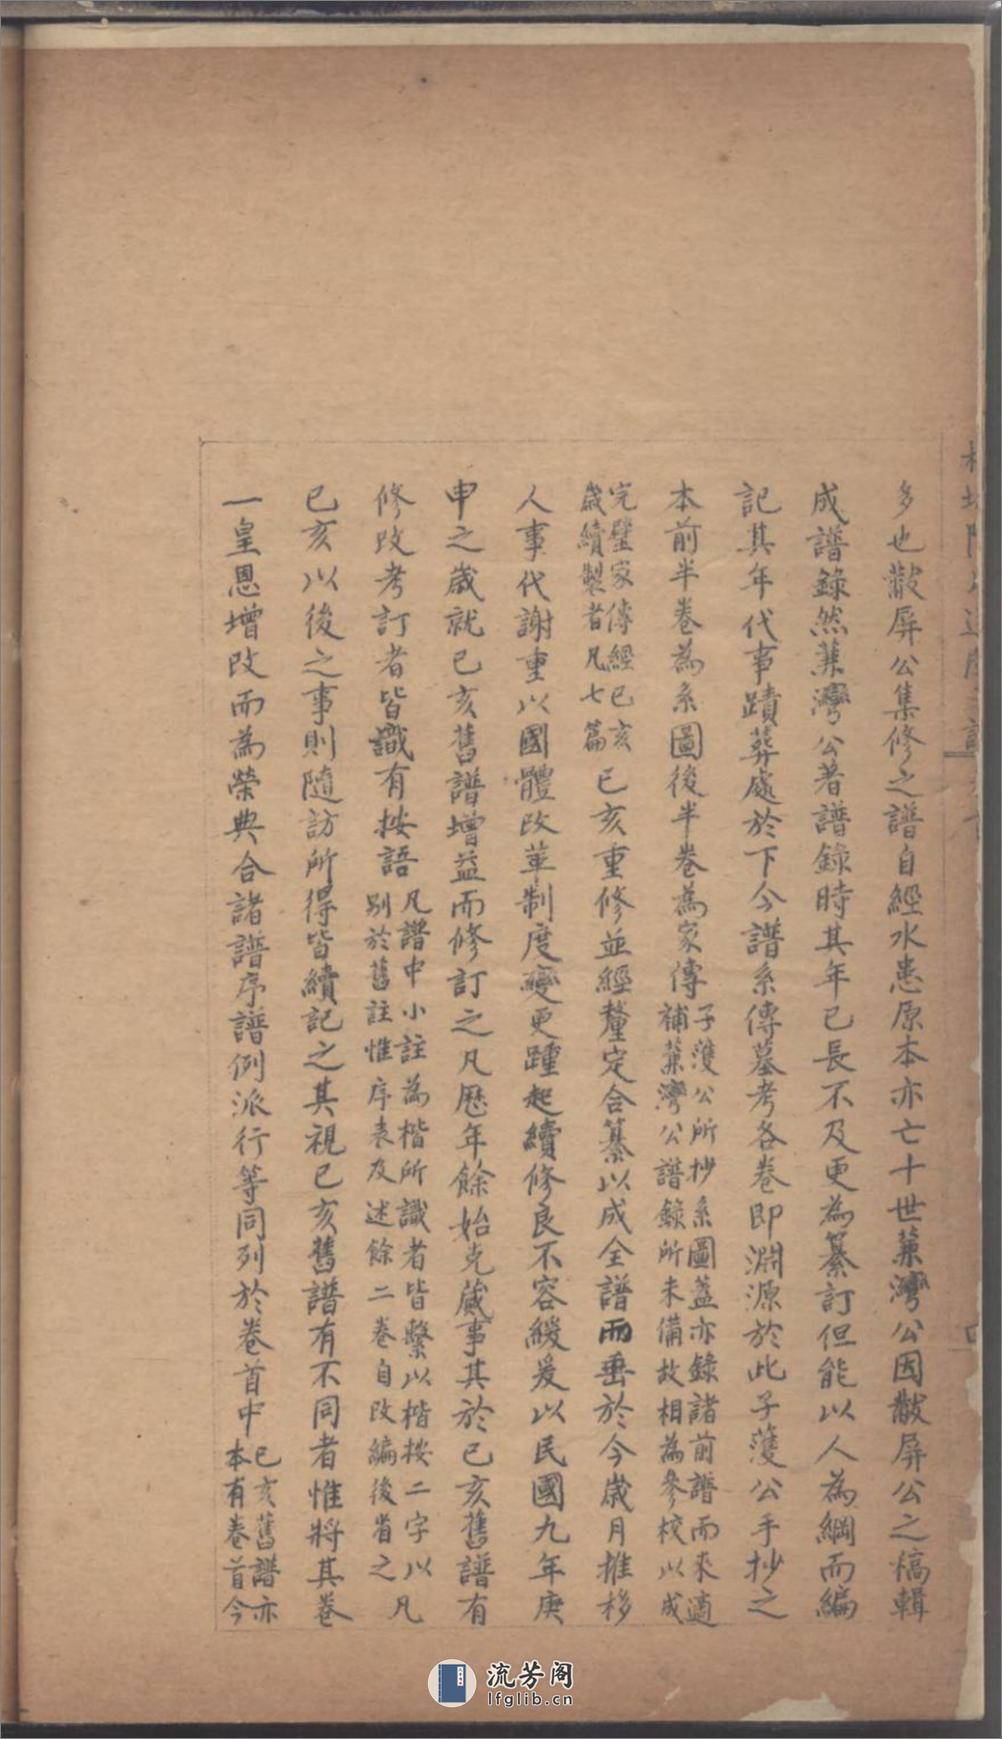 多也黻屏公集修之譜自經水患原本亦亡十世蒹灣公因黻屏公之稿輯
成譜錄然蒹灣公著譜錄時其年已長不及更為纂訂但能以人為綱而編
記其年代事蹟葬處於下今譜系傳墓考各卷即淵源於此子䕶公手抄之
本前半卷為系圖後半卷為家傳子䕶公所抄系圖蓋亦錄諸前譜而來適
補蒹灣公譜錄所未備故相為參校以成
完璧家傳經已亥
歲續製者凡七篇已亥重修並經釐定合纂以成全譜而垂於今歲月推移
人事代謝重以國體改革制度變更踵起續修良不容緩爰以民國九年庚
申之歲就已亥舊譜增益而修訂之凡歷年餘始克蕆事其於已亥舊譜有
修改考訂者皆識有按語凡譜中小註為楷所識者皆繫以楷按二字以凡
別於舊註惟序表及述餘二卷自改編後省之
已亥以後之事則隨訪所得皆續記之其視已亥舊譜有不同者惟將其卷
一皇恩增改而為榮典合諸譜序譜例派行等同列於卷首中已亥舊譜亦
本有卷首今
流芳阁
lfglib.cn